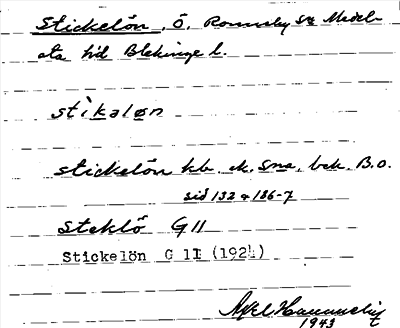 Stickelön, Ö. Ronneby sn Medel-
sta hd Blekinge l.
stìkaløn
stickelön kb. ek. Sma. bek. B.O.
sid 132 & 136-7
Steklö G II
Stickelön G II (1924)
Axel
1943